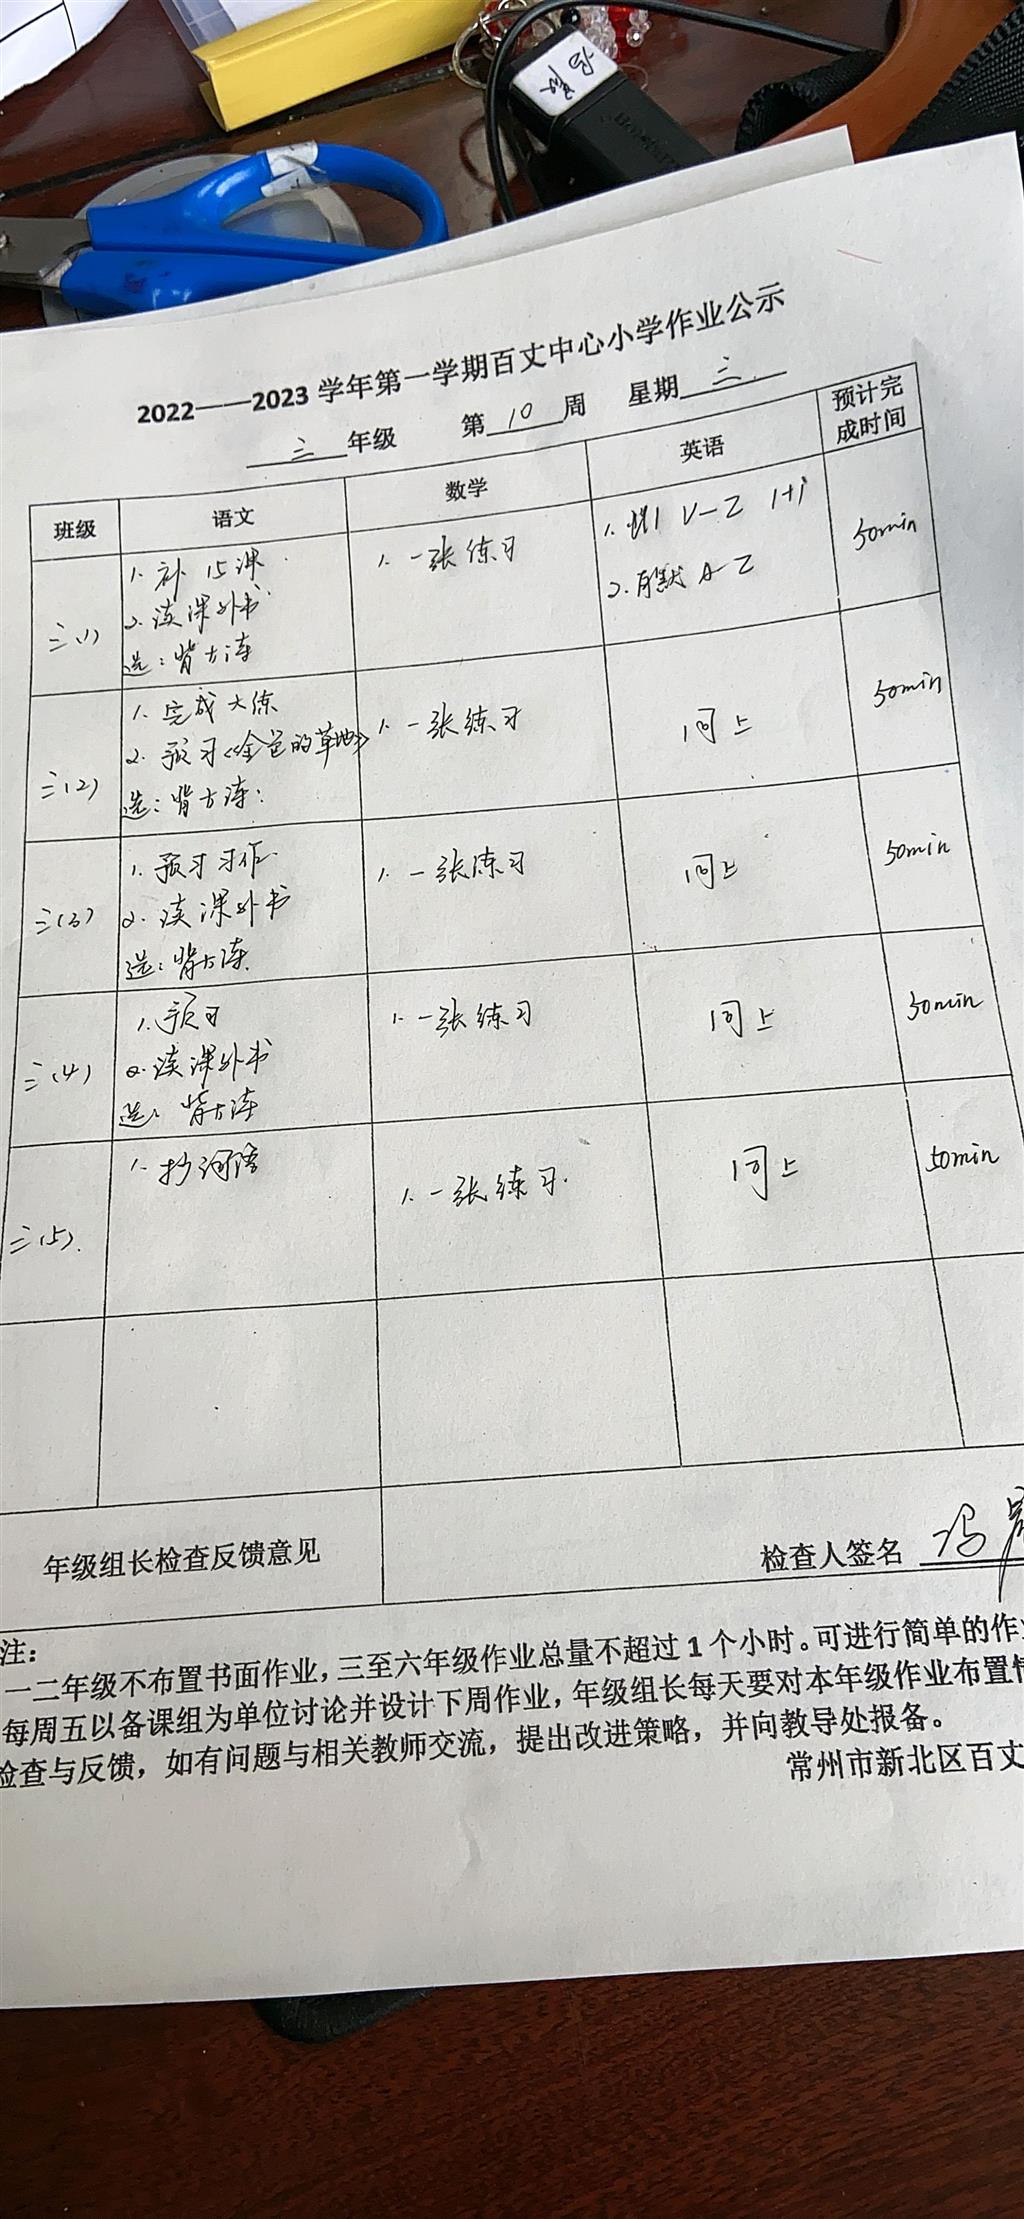 2022——2023 学年第一学期百丈中心小学作业公示
三 年级 第 10 周 星期 三
班级 语文 数学 英语 预计完成时间
三(1)
1. 补 15课
2. 读课外书
选:背古诗
1. 一张练习
1. V-Z 1+1
2. 默 A-Z
50min
三(2)
1. 完成大练
2. 预习《金色的草地》
选:背古诗
1. 一张练习
同上
50min
三(3)
1. 预习习作
2. 读课外书
选:背古诗
1. 一张练习
同上
50min
三(4)
1. 预习
2. 读课外书
选:背古诗
1. 一张练习
同上
50min
三(5)
1. 抄词语
1. 一张练习
同上
50min
年级组长检查反馈意见
检查人签名 冯
注:
一二年级不布置书面作业,三至六年级作业总量不超过 1 个小时。可进行简单的作
每周五以备课组为单位讨论并设计下周作业,年级组长每天要对本年级作业布置情
检查与反馈,如有问题与相关教师交流,提出改进策略,并向教导处报备。
常州市新北区百丈